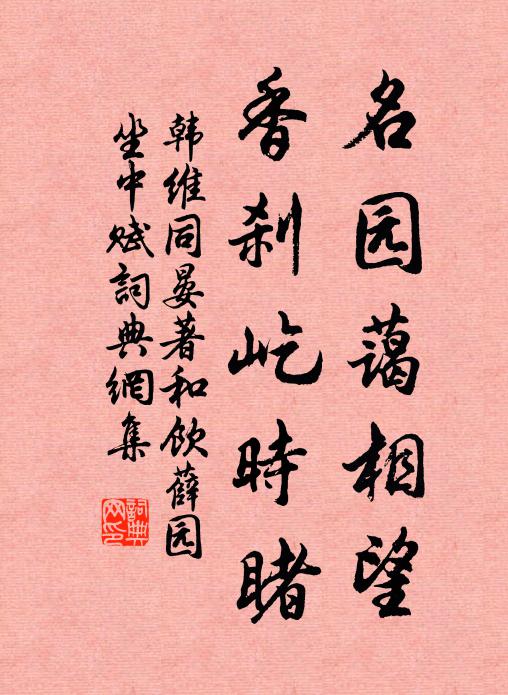 名园蔼相望
香刹屹時睹
韩维同晏著和饮薛园
坐中赋詞典網集
詞典網印